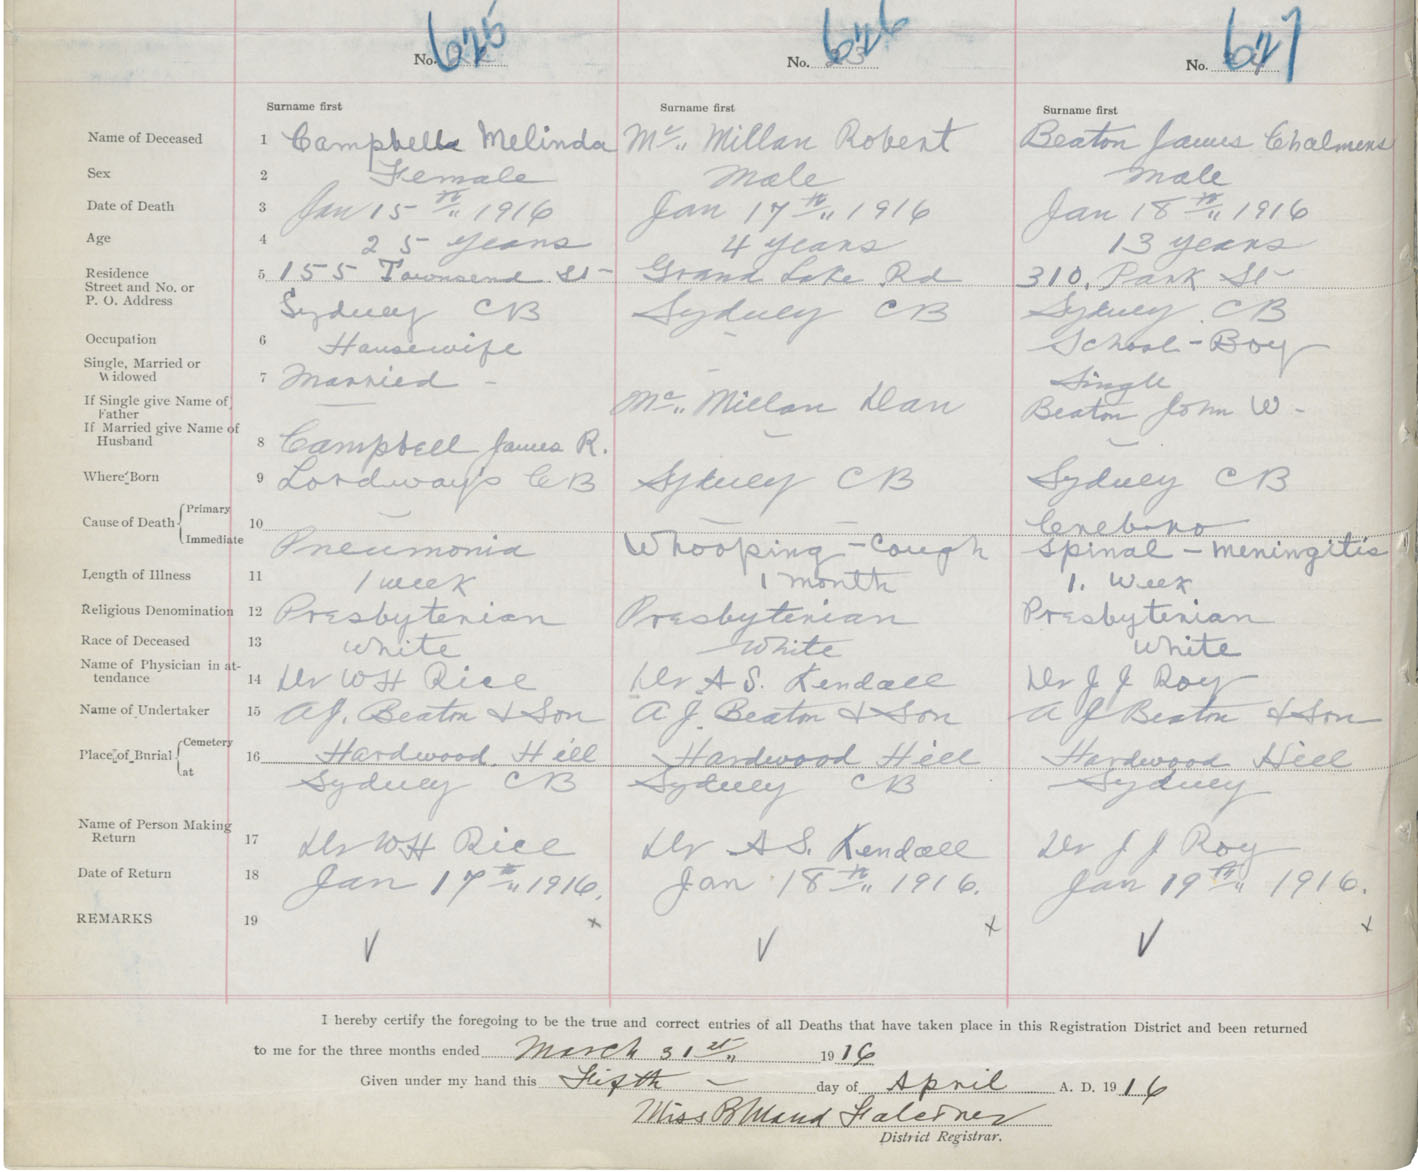 No. 625 No. 626 No. 627
Surname first Surname first Surname first
Name of Deceased 1 Campbell Melinda Mc„ Millan Robert Beaton James Chalmers
Sex 2 Female Male Male
Date of Death 3 Jan 15th„ 1916 Jan 17th„ 1916 Jan 18th„ 1916
Age 4 25 years 4 years 13 years
Residence
Street and No. or 5 155 Townsend St Grand Lake Rd 310, Park St
P. O. Address Sydney CB Sydney CB Sydney CB
Occupation 6 Housewife – School-Boy
Single, Married or
Widowed 7 Married – – Single
If Single give Name of
Father — Mc„ Millan Dan Beaton John W -
If Married give Name of
Husband 8 Campbell James R. – –
Where Born 9 Lordway's CB Sydney CB Sydney CB
Cause of Death { Primary 10 – – – Cerebro
Immediate Pneumonia Whooping-Cough Spinal-meningitis
Length of Illness 11 1 week 1 month 1. Week
Religious Denomination 12 Presbyterian Presbyterian Presbyterian
Race of Deceased 13 White White White
Name of Physician in at-
tendance 14 Dr WH Rice Dr A S. Kendall Dr J J Roy
Name of Undertaker 15 A J. Beaton & Son A J. Beaton & Son A J Beaton & Son
Place of Burial { Cemetery 16 Hardwood Hill Hardwood Hill Hardwood Hill
at Sydney CB Sydney CB Sydney
Name of Person Making
Return 17 Dr WH Rice Dr A S. Kendall Dr J J Roy
Date of Return 18 Jan 17th„ 1916. Jan 18th„ 1916. Jan 19th„ 1916.
REMARKS 19 x x x
√ √ √
I hereby certify the foregoing to be the true and correct entries of all Deaths that have taken place in this Registration District and been returned
to me for the three months ended March 31st„ 1916
Given under my hand this Fifth – day of April A. D. 1916
Miss B Maud Falconer
District Registrar.